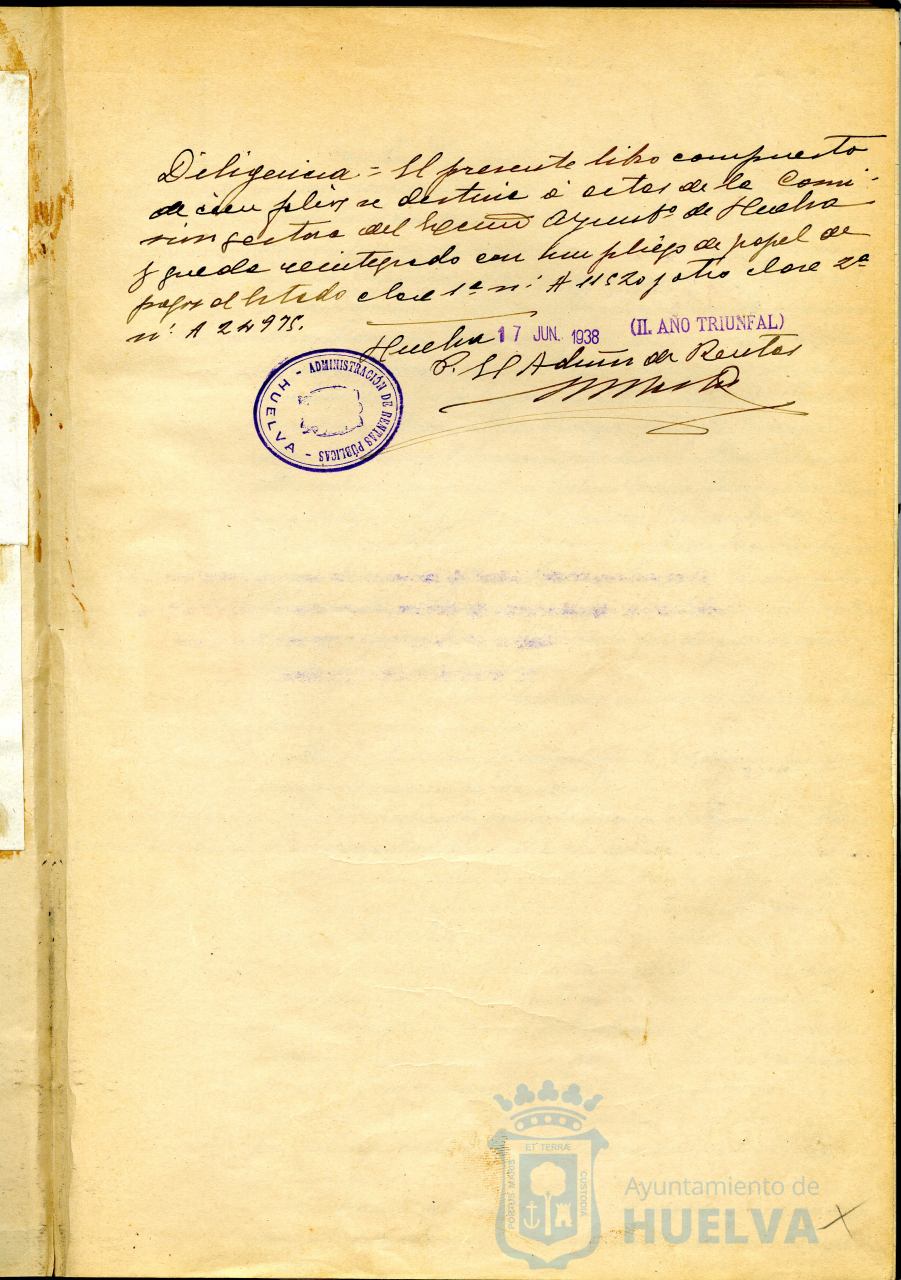 Diligencia = El presente libro compuesto
de cien pliegos se destina á actas de la Comi-
sión gestora del Excmo Ayuntº de Huelva
y queda reintegrado con un pliego de papel de
pagos al Estado clase 1ª nº A 11520 y otro clase 2ª
nº A 24975.
Huelva 17 JUN. 1938 (II. AÑO TRIUNFAL)
P. El Admon de Rentas
- ADMINISTRACIÓN DE RENTAS PÚBLICAS - HUELVA
PORTUS MARIS ET TERRÆ CUSTODIA
Ayuntamiento de
HUELVA